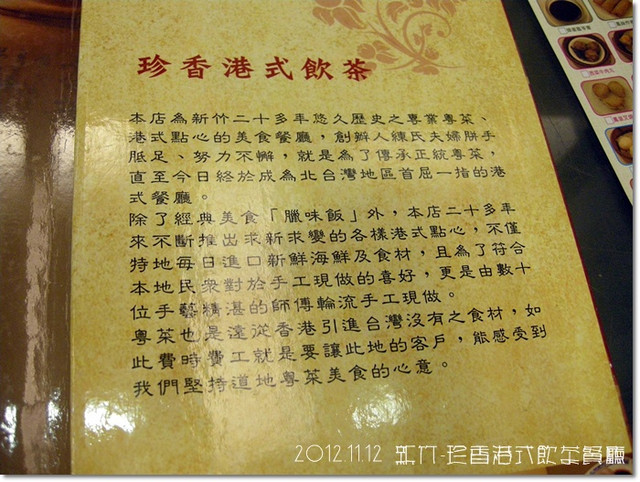 珍香港式飲茶
本店為新竹二十多年悠久歷史之專業粵菜、
港式點心的美食餐廳，創辦人練氏夫婦胼手
胝足、努力不懈，就是為了傳承正統粵菜，
直至今日終於成為北台灣地區首屈一指的港
式餐廳。
除了經典美食「臘味飯」外，本店二十多年
來不斷推出求新求變的各樣港式點心，不僅
特地每日進口新鮮海鮮及食材，且為了符合
本地民眾對於手工現做的喜好，更是由數十
位手藝精湛的師傅輪流手工現做。
粵菜也是遠從香港引進台灣沒有之食材，如
此費時費工就是要讓此地的客戶，能感受到
我們堅持道地粵菜美食的心意。
2012.11.12 新竹-珍香港式飲茶餐廳